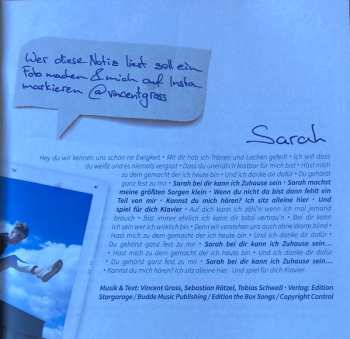 Wer diese Notiz liest soll ein
Foto machen & mich auf Insta
markieren @vincentgross
Sarah
Hey du wir kennen uns schon ne Ewigkeit • Mit dir hab ich Tränen und Lachen geteilt • Ich will dass
du weißt und es niemals vergisst • Dass du unendlich kostbar für mich bist • Hast mich
zu dem gemacht der ich heute bin • Und ich danke dir dafür • Du gehörst
ganz fest zu mir • Sarah bei dir kann ich Zuhause sein • Sarah machst
meine größten Sorgen klein • Wenn du nicht da bist dann fehlt ein
Teil von mir • Kannst du mich hören? Ich sitz alleine hier • Und
spiel für dich Klavier • Auf dich kann ich zähl'n wenn ich mal jemand
brauch • Bist immer ehrlich ich kann dir total vertrau'n • Bei dir kann
ich sein wer ich wirklich bin • Denn wir verstehen uns auch ohne
Hast mich zu dem gemacht der ich heute bin • Und ich danke dir dafür •
Du gehörst ganz fest zu mir • Sarah bei dir kann ich Zuhause sein...
Hast mich zu dem gemacht der ich heute bin • Und ich danke dir dafür
Du gehörst ganz fest zu mir • Sarah bei dir kann ich Zuhause sein... •
Kannst du mich hören? Ich sitz alleine hier Und spiel für dich Klavier
Musik & Text: Vincent Gross, Sebastian Rätzel, Tobias Schwall • Verlag: Edition
Stargarage / Budde Music Publishing / Edition the Box Songs / Copyright Control